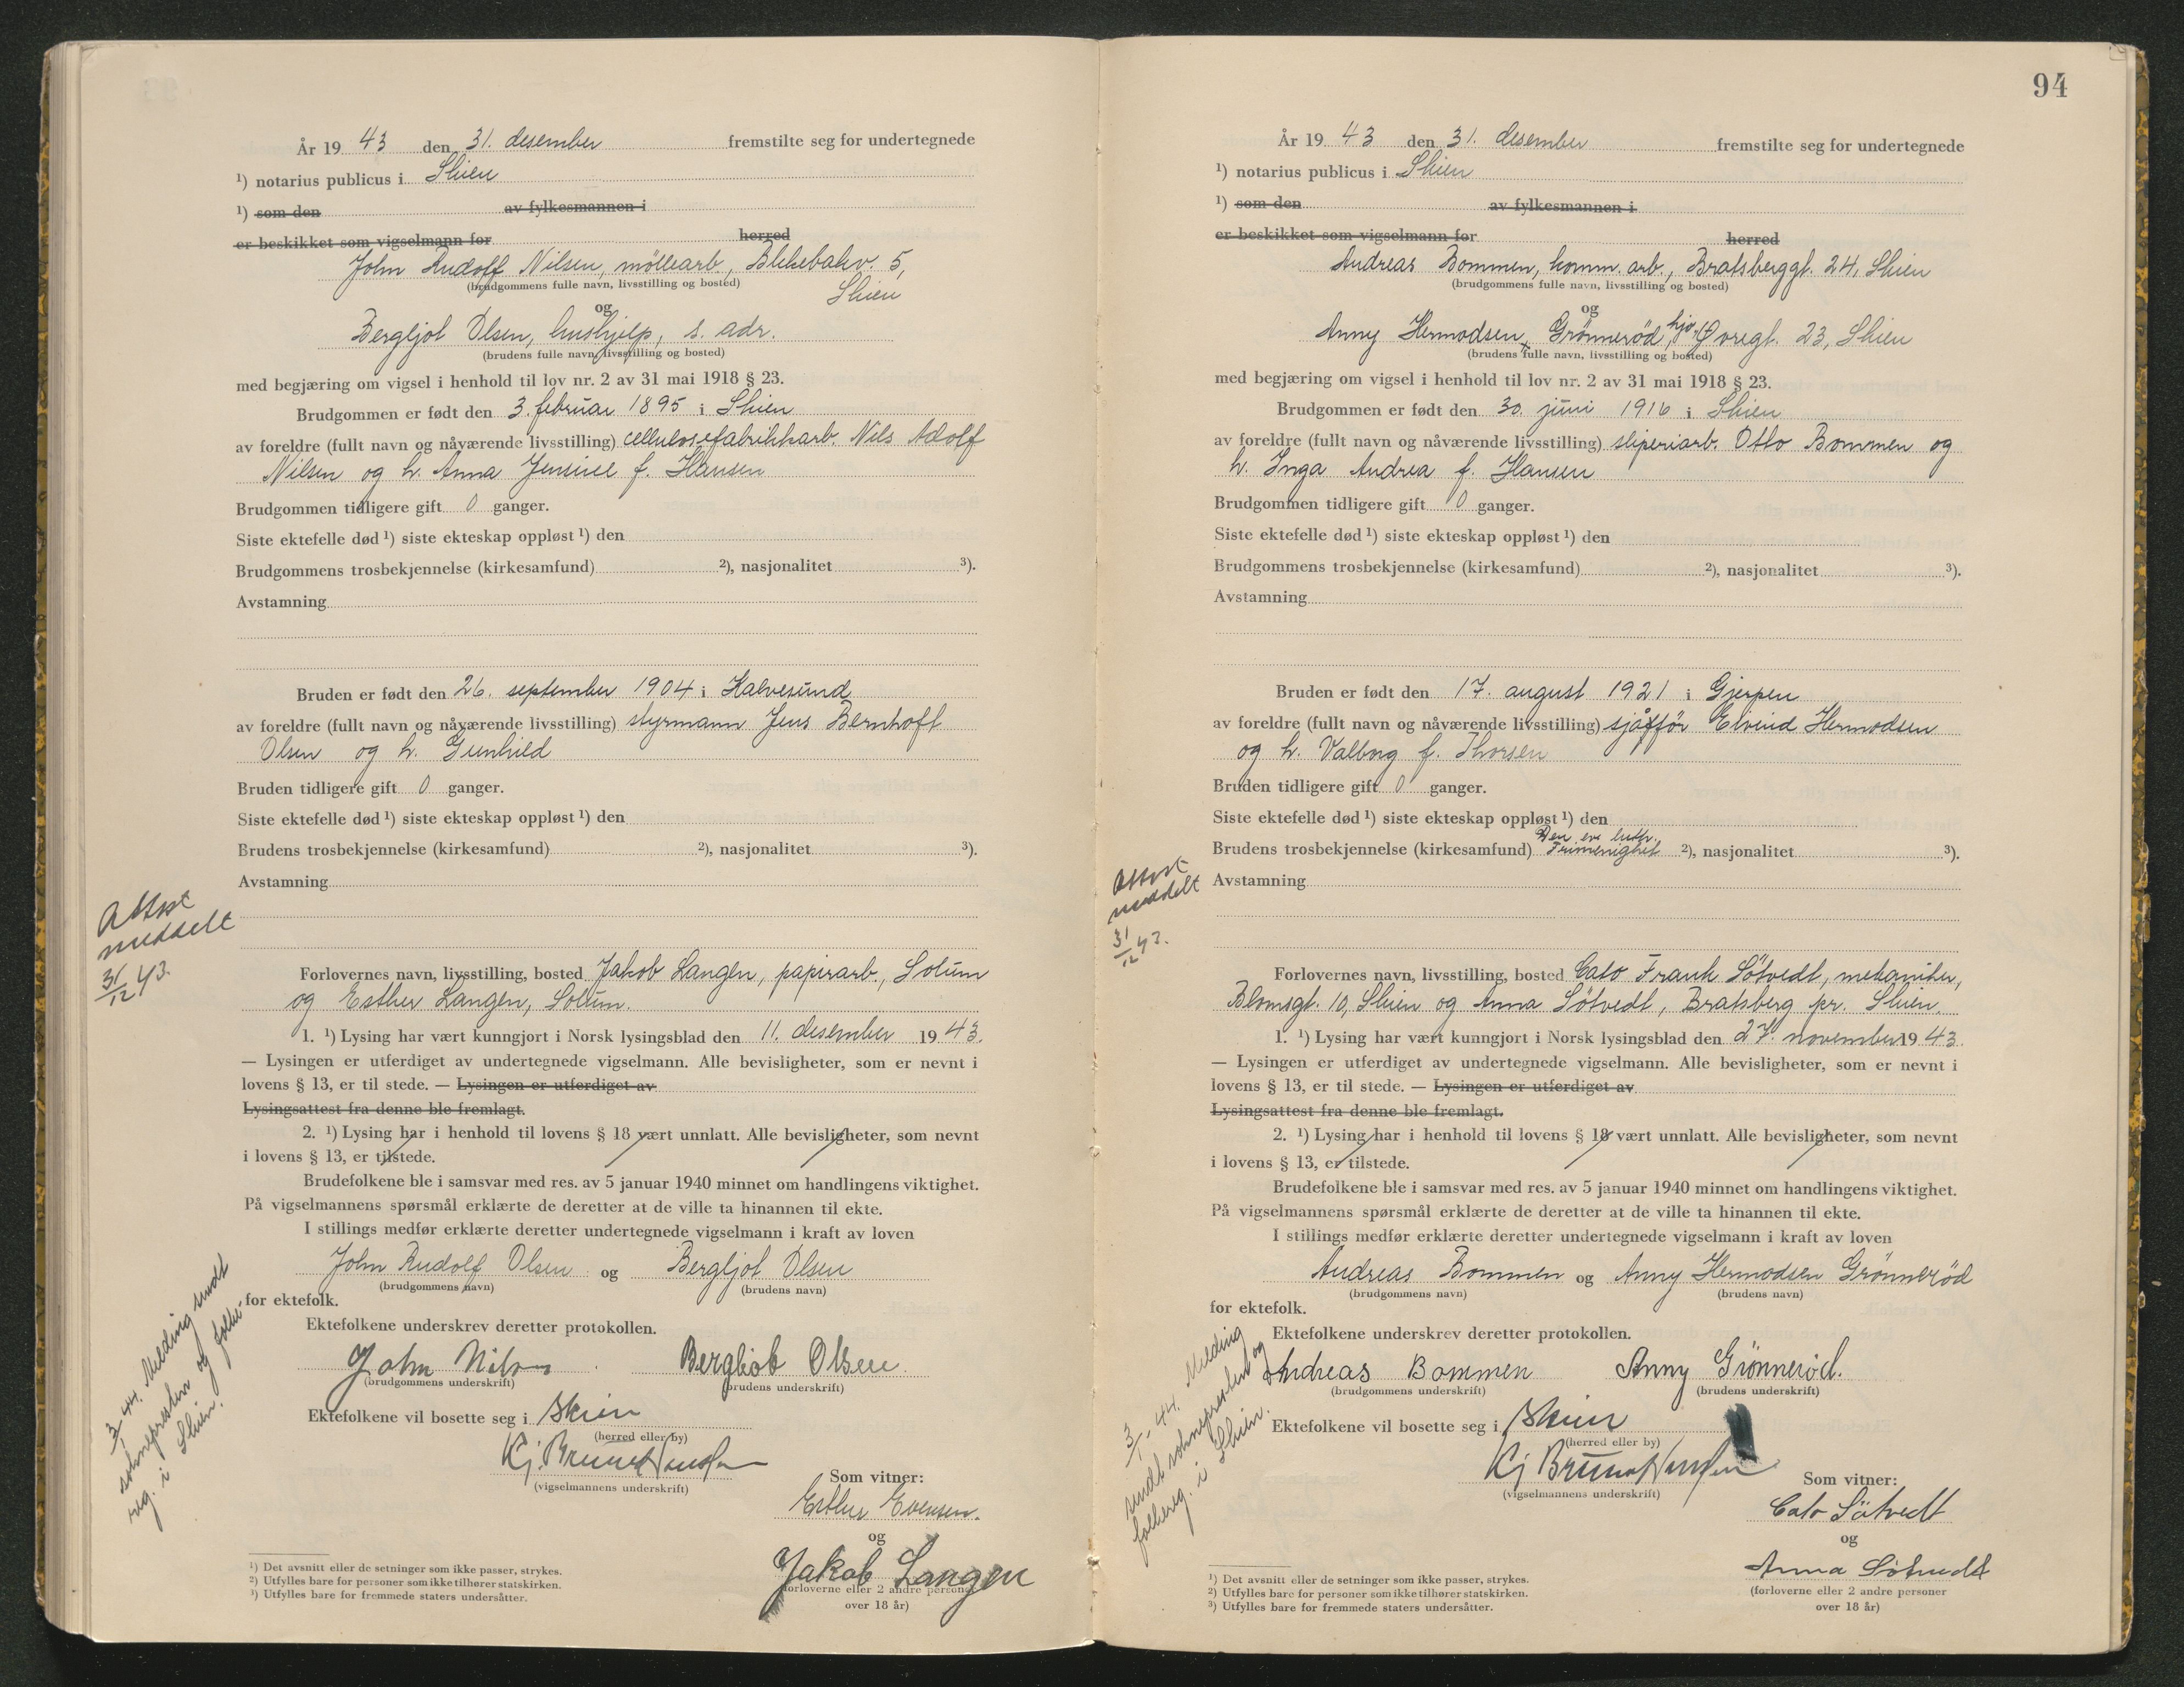 År 19 43 den 31. desember fremstilte seg for undertegnede
¹) notarius publicus i Skien
¹) som den av fylkesmannen i
er beskikket som vigselmann for herred
John Rudolf Nilsen, möllearb., Blekebakv. 5,
(brudgommens fulle navn, livsstilling og bosted)
Skien
og
Bergljot Olsen, hushjelp, s. adr.
(brudens fulle navn, livsstilling og bosted)
med begjæring om vigsel i henhold til lov nr. 2 av 31 mai 1918 § 23.
Brudgommen er født den 3. februar 1895 i Skien
av foreldre (fullt navn og nåværende livsstilling) cellulosefabrikkarb. Nils Adolf
Nilsen og h. Anna Jensine f. Hansen
Brudgommen tidligere gift 0 ganger.
Siste ektefelle død ¹) siste ekteskap oppløst ¹) den
Brudgommens trosbekjennelse (kirkesamfund) ²), nasjonalitet ³).
Avstamning
Bruden er født den 26. september 1904 i Kalvesund
av foreldre (fullt navn og nåværende livsstilling) styrmann Jens Bernhoft
Olsen og h. Gunhild
Bruden tidligere gift 0 ganger.
Siste ektefelle død ¹) siste ekteskap oppløst ¹) den
Brudens trosbekjennelse (kirkesamfund) ²), nasjonalitet ³).
Avstamning
Attest
meddelt
31/12 43.
Forlovernes navn, livsstilling, bosted Jakob Langen, papirarb., Solum
og Esther Langen, Solum.
1. ¹) Lysing har vært kunngjort i Norsk lysingsblad den 11. desember 19 43.
— Lysingen er utferdiget av undertegnede vigselmann. Alle bevisligheter, som er nevnt i
lovens § 13, er til stede. — Lysingen er utferdiget av
Lysingsattest fra denne ble fremlagt.
2. ¹) Lysing har i henhold til lovens § 18 vært unnlatt. Alle bevisligheter, som nevnt
i lovens § 13, er tilstede.
Brudefolkene ble i samsvar med res. av 5 januar 1940 minnet om handlingens viktighet.
På vigselmannens spørsmål erklærte de deretter at de ville ta hinannen til ekte.
I stillings medfør erklærte deretter undertegnede vigselmann i kraft av loven
John Rudolf Olsen og Bergljot Olsen
(brudgommens navn) (brudens navn)
for ektefolk.
Ektefolkene underskrev deretter protokollen.
John Nilsen Bergliot Olsen.
(brudgommens underskrift) (brudens underskrift)
Ektefolkene vil bosette seg i Skien
(herred eller by)
Kj Bruun Hansen
(vigselmannens underskrift)
Som vitner:
Esther Evensen.
og
Jakob Langen
(forloverne eller 2 andre personer
over 18 år)
3/1 44. Melding sendt
soknepresten og folke-
reg. i Skien.
¹) Det avsnitt eller de setninger som ikke passer, strykes.
²) Utfylles bare for personer som ikke tilhører statskirken.
³) Utfylles bare for fremmede staters undersåtter.
94
År 19 43 den 31. desember fremstilte seg for undertegnede
¹) notarius publicus i Skien
¹) som den av fylkesmannen i
er beskikket som vigselmann for herred
Andreas Bommen, komm. arb., Bratsberggt. 24, Skien
(brudgommens fulle navn, livsstilling og bosted)
og
Anny Hermodsen Grönneröd, hjv. Øvregt. 23, Skien
(brudens fulle navn, livsstilling og bosted)
med begjæring om vigsel i henhold til lov nr. 2 av 31 mai 1918 § 23.
Brudgommen er født den 30. juni 1916 i Skien
av foreldre (fullt navn og nåværende livsstilling) sliperiarb. Otto Bommen og
h. Inga Andrea f. Hansen
Brudgommen tidligere gift 0 ganger.
Siste ektefelle død ¹) siste ekteskap oppløst ¹) den
Brudgommens trosbekjennelse (kirkesamfund) ²), nasjonalitet ³).
Avstamning
Bruden er født den 17. august 1921 i Gjerpen
av foreldre (fullt navn og nåværende livsstilling) sjåfför Eivind Hermodsen
og h. Valborg f. Thorsen
Bruden tidligere gift 0 ganger.
Siste ektefelle død ¹) siste ekteskap oppløst ¹) den
Den ev. luth.
Brudens trosbekjennelse (kirkesamfund) Frimenighet ²), nasjonalitet ³).
Avstamning
Attest
meddelt
31/12 43.
Forlovernes navn, livsstilling, bosted Cato Frank Sötvedt, mekaniker,
Blomsgt. 10, Skien og Anna Sötvedt, Bratsberg pr. Skien.
1. ¹) Lysing har vært kunngjort i Norsk lysingsblad den 27. november 19 43.
— Lysingen er utferdiget av undertegnede vigselmann. Alle bevisligheter, som er nevnt i
lovens § 13, er til stede. — Lysingen er utferdiget av
Lysingsattest fra denne ble fremlagt.
2. ¹) Lysing har i henhold til lovens § 18 vært unnlatt. Alle bevisligheter, som nevnt
i lovens § 13, er tilstede.
Brudefolkene ble i samsvar med res. av 5 januar 1940 minnet om handlingens viktighet.
På vigselmannens spørsmål erklærte de deretter at de ville ta hinannen til ekte.
I stillings medfør erklærte deretter undertegnede vigselmann i kraft av loven
Andreas Bommen og Anny Hermodsen Grönneröd
(brudgommens navn) (brudens navn)
for ektefolk.
Ektefolkene underskrev deretter protokollen.
Andreas Bommen Anny Grönneröd.
(brudgommens underskrift) (brudens underskrift)
Ektefolkene vil bosette seg i Skien
(herred eller by)
Kj Bruun Hansen
(vigselmannens underskrift)
Som vitner:
Cato Sötvedt
og
Anna Sötvedt
(forloverne eller 2 andre personer
over 18 år)
3/1-44. Melding
sendt soknepresten og
folkereg. i Skien.
¹) Det avsnitt eller de setninger som ikke passer, strykes.
²) Utfylles bare for personer som ikke tilhører statskirken.
³) Utfylles bare for fremmede staters undersåtter.